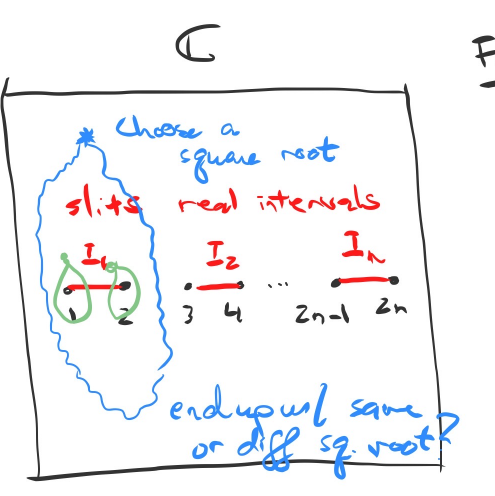 ℂ
F
Choose a
square root
slits real intervals
I₁ I₂ Iₙ
1 2 3 4 ... 2n-1 2n
end up w/ same
or diff sq. root?